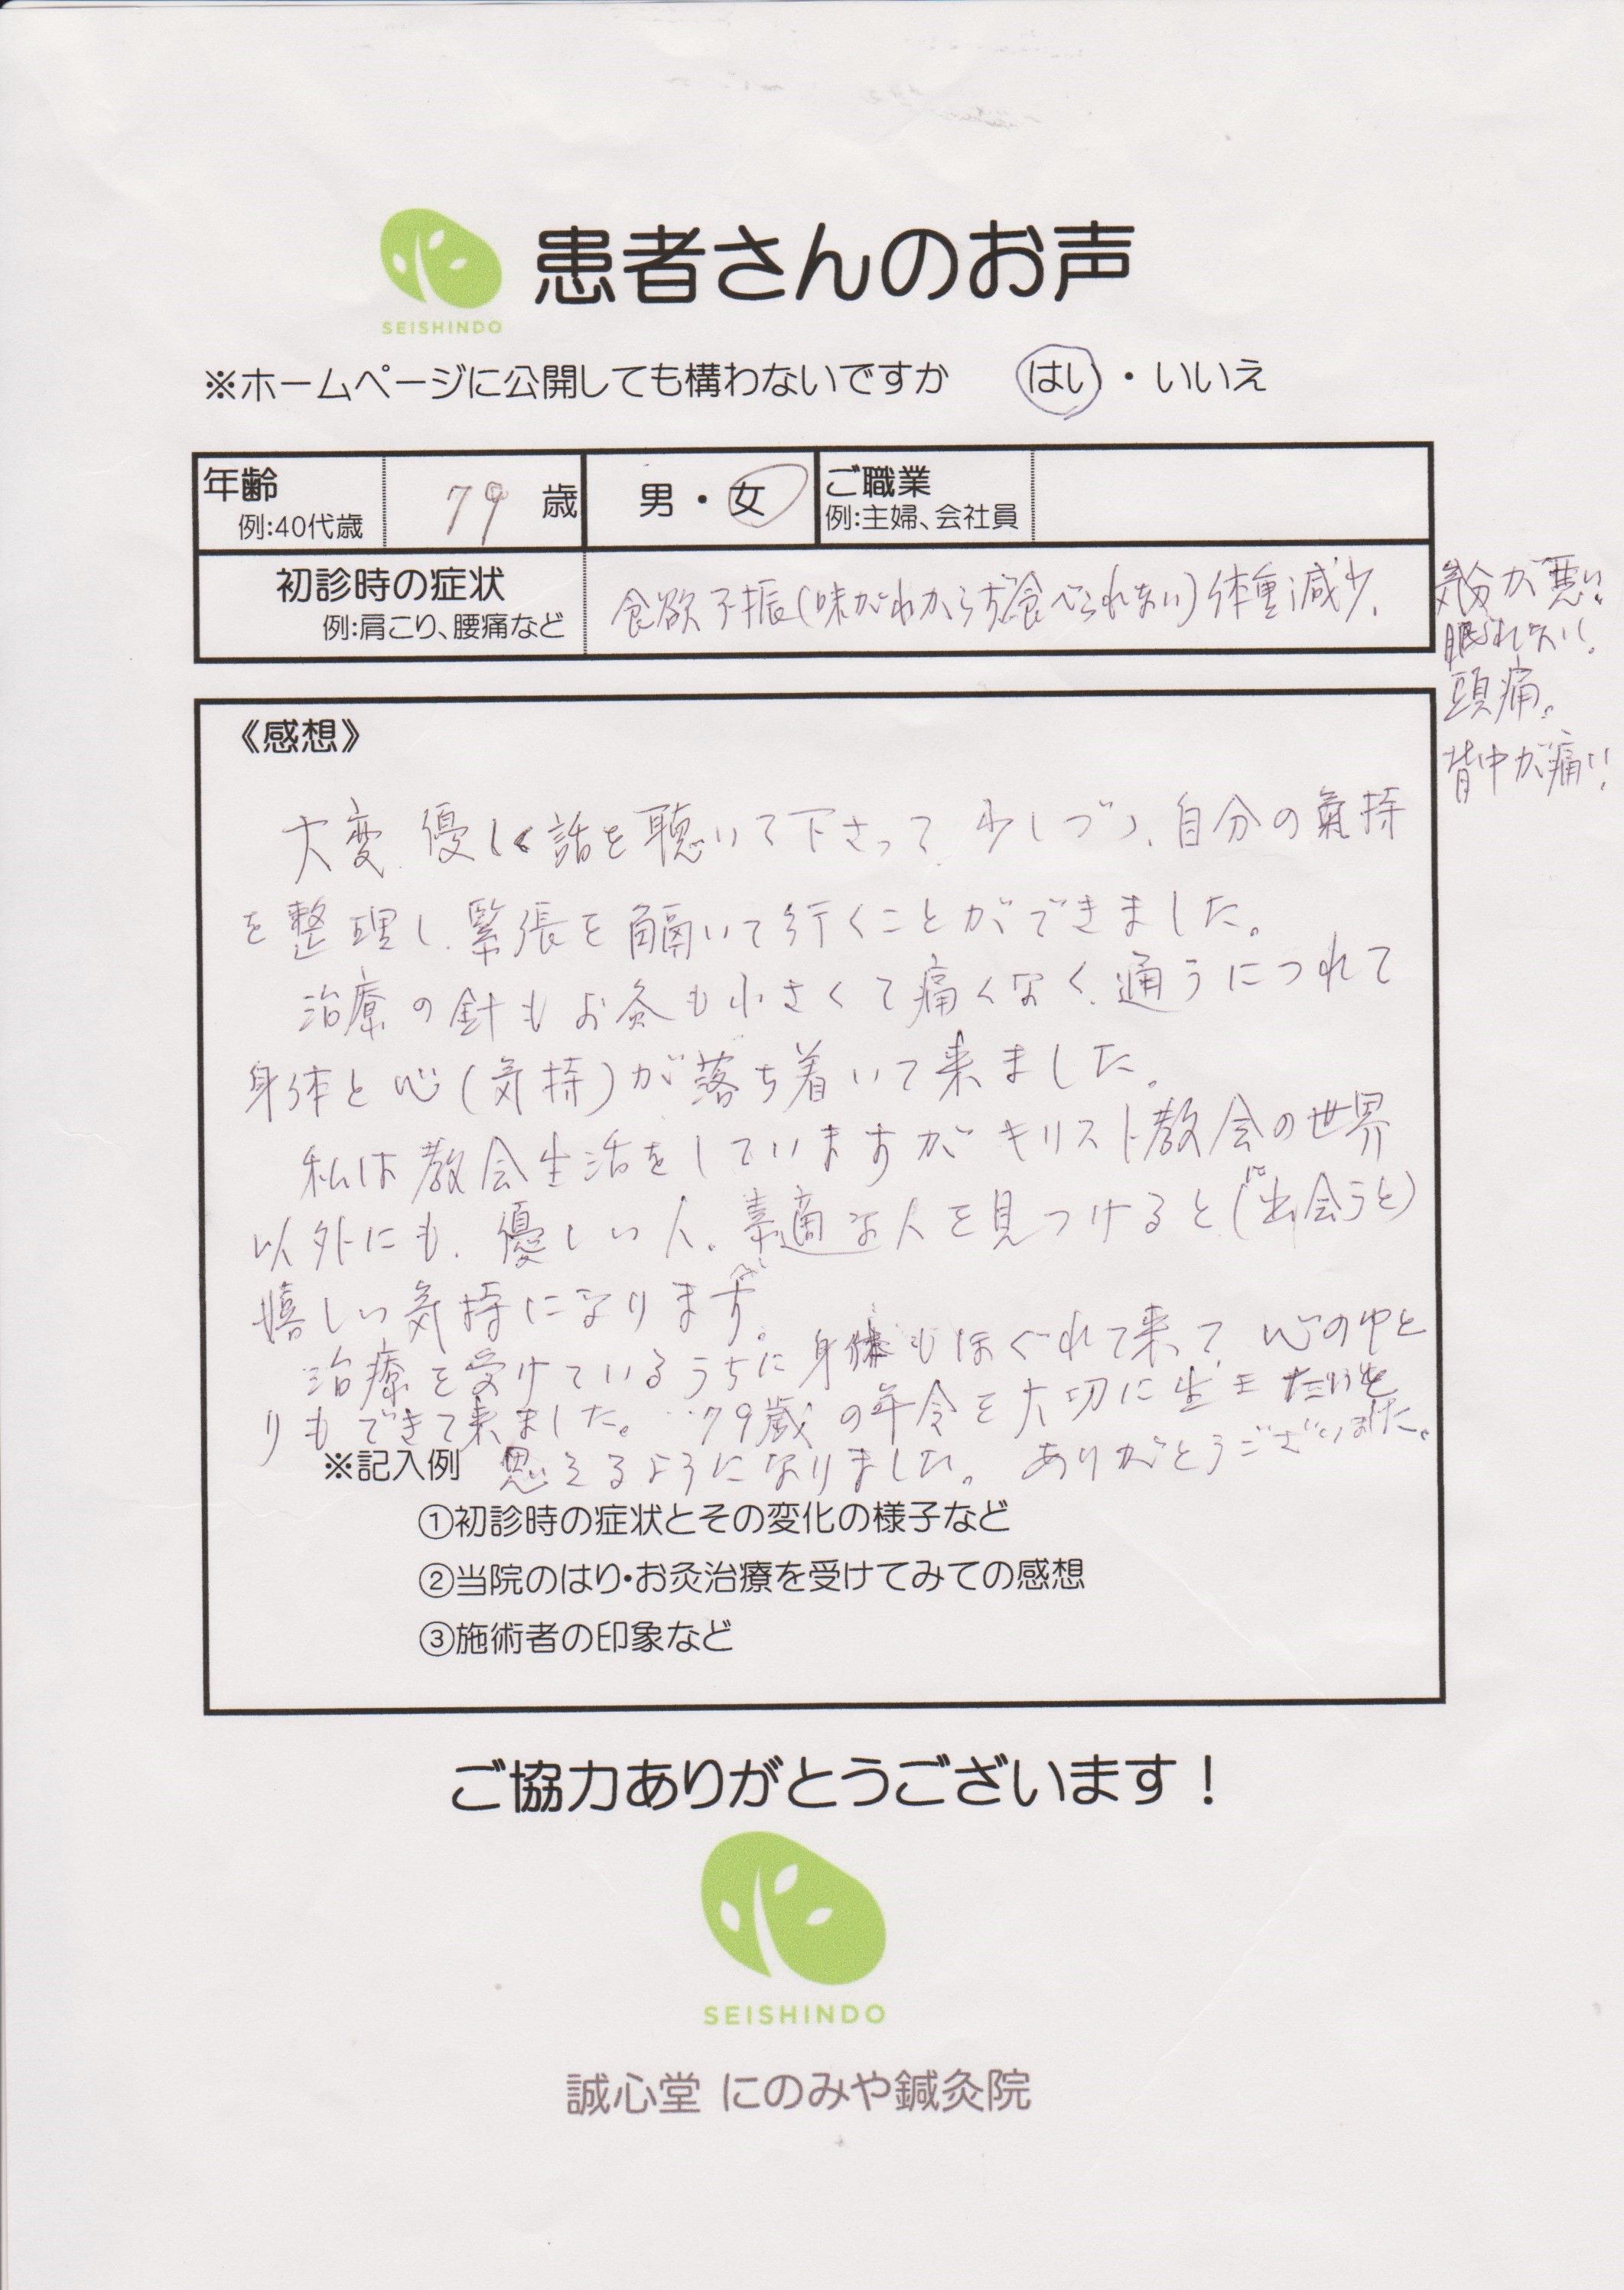 SEISHINDO
患者さんのお声
※ホームページに公開しても構わないですか はい・いいえ
年齢
例:40代歳
79 歳
男・女
ご職業
例:主婦、会社員
初診時の症状
例:肩こり、腰痛など
食欲不振(味がわからず食べられない)体重減少、
気分が悪い。
眠れない。
頭痛。
背中が痛い。
《感想》
大変、優しく話を聴いて下さって、少しづつ、自分の氣持
を整理し、緊張を解いて行くことができました。
治療の針もお灸も小さくて痛くなく、通うにつれて
身体と心(気持)が落ち着いて来ました。
私は教会生活をしていますがキリスト教会の世界
以外にも、優しい人。素適な人を見つけると(に出会うと)
嬉しい気持になります。
治療を受けているうちに身体もほぐれて来て、心のゆと
りもできて来ました。79歳の年令を大切に生きたいと
思えるようになりました。ありがとうございました。
※記入例
①初診時の症状とその変化の様子など
②当院のはり・お灸治療を受けてみての感想
③施術者の印象など
ご協力ありがとうございます!
SEISHINDO
誠心堂 にのみや鍼灸院